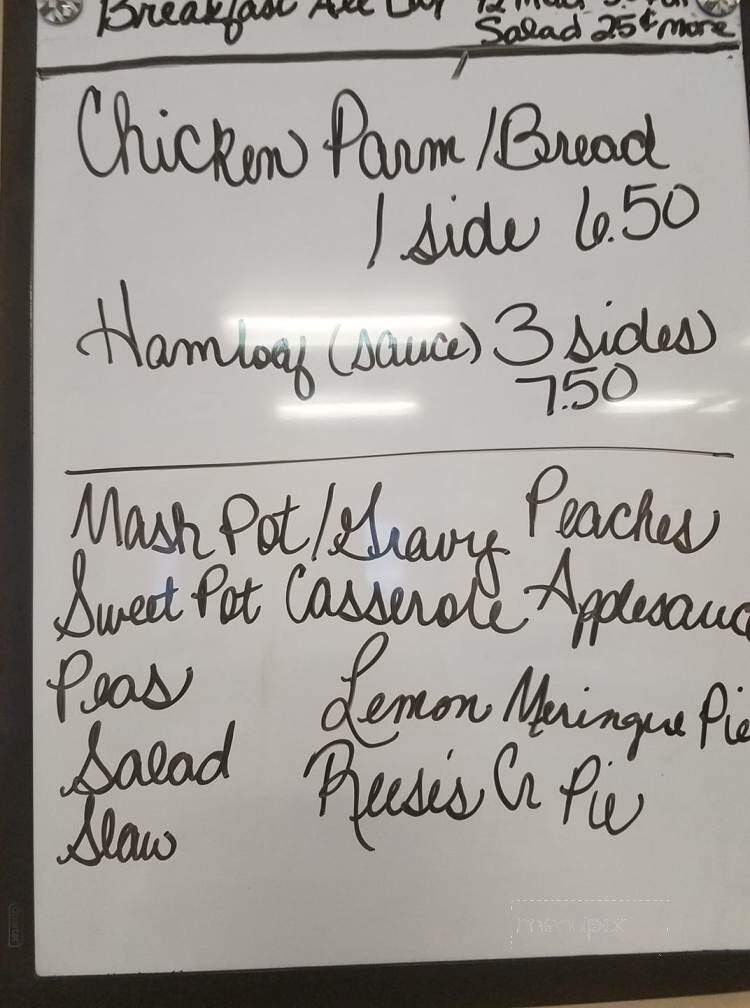 Breakfast All Day
Salad 25¢ more
Chicken Parm / Bread
1 side 6.50
Hamloaf (sauce) 3 sides
7.50
Mash Pot/Gravy Peaches
Sweet Pot Casserole Applesauc
Peas Lemon Meringue Pie
Salad Reese's Cr Pie
Slaw
menupix